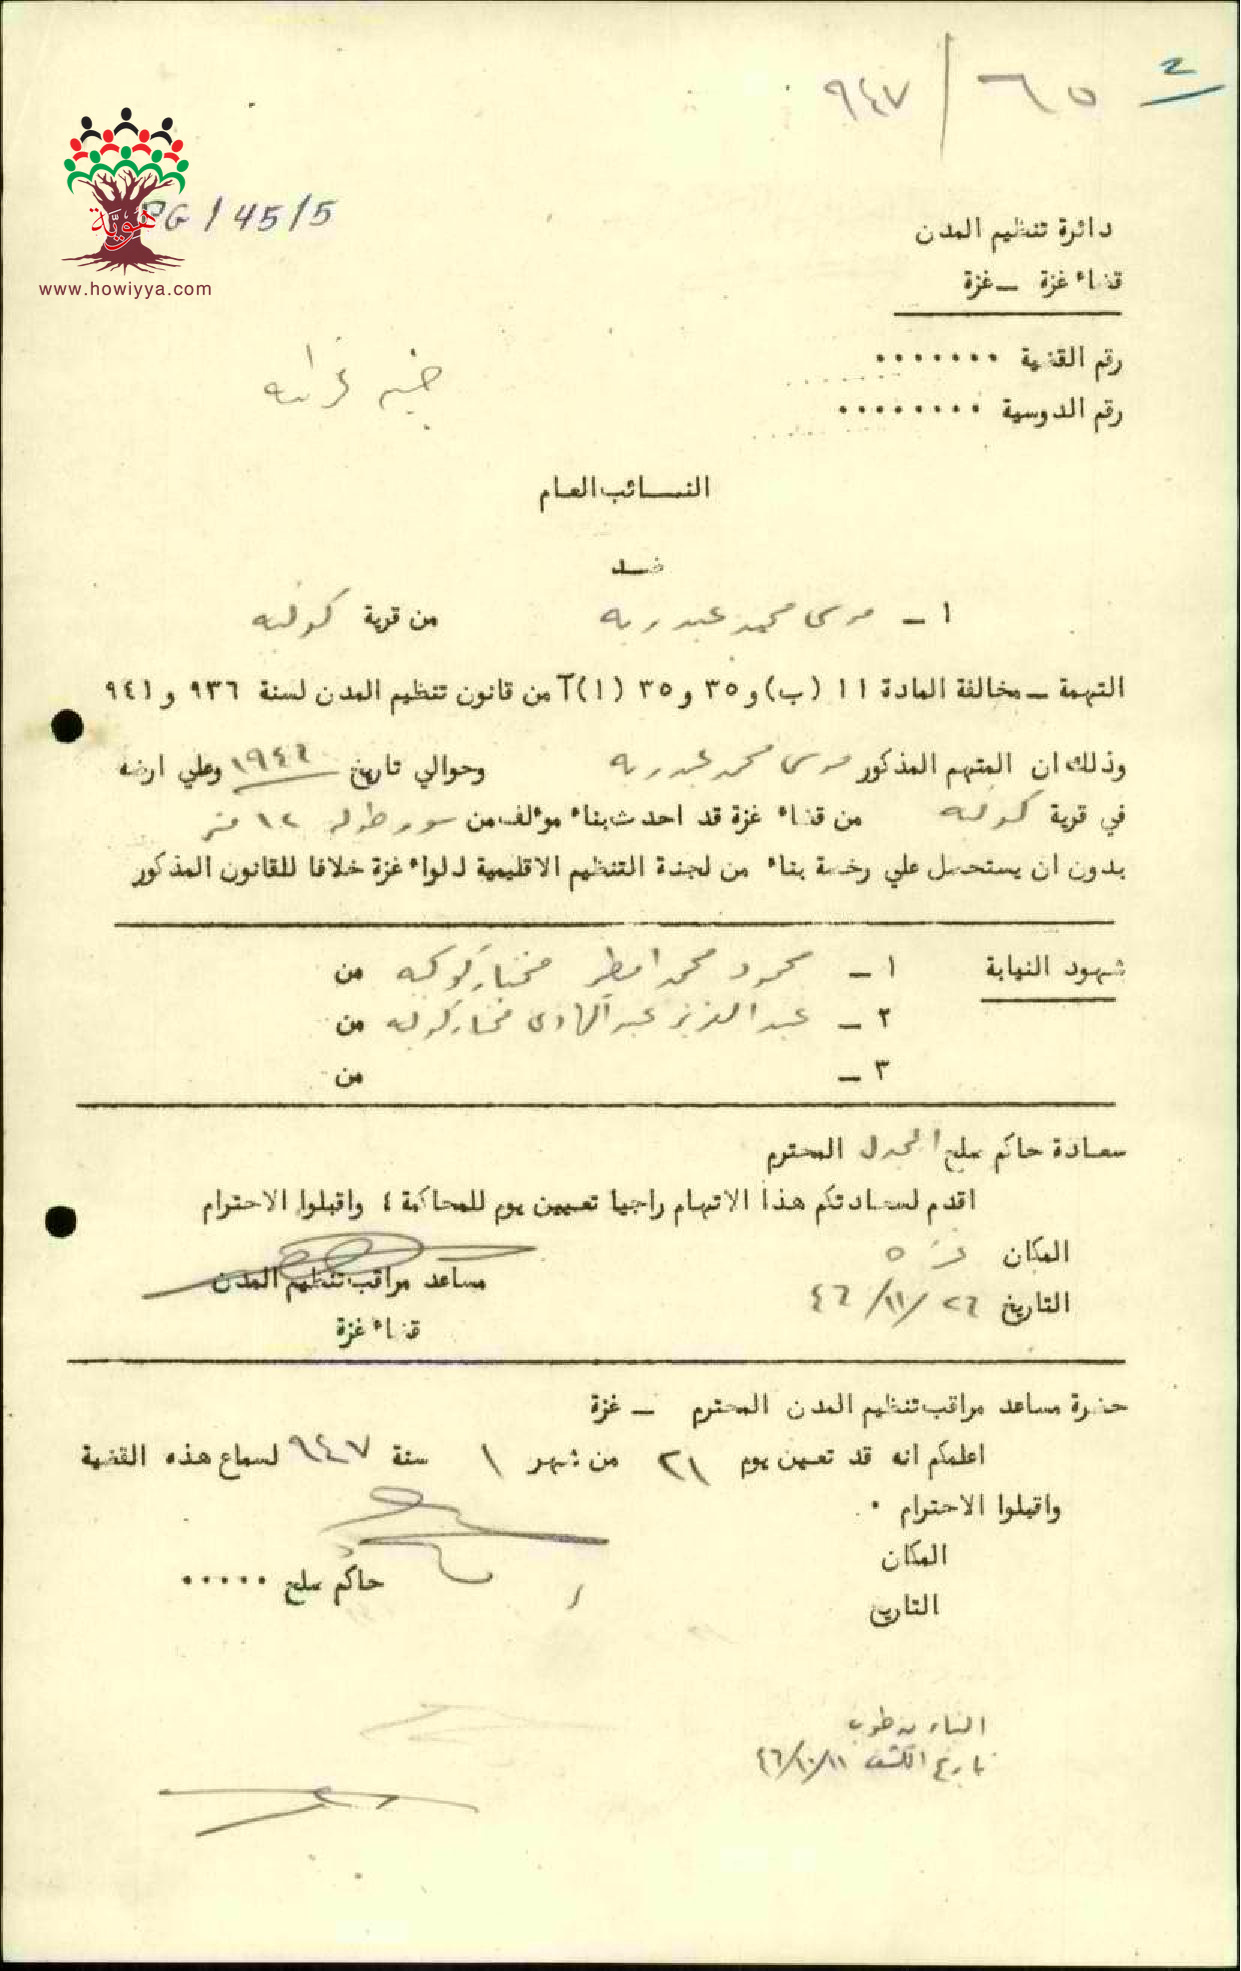 ٢
٦٥ / ٩٤٧
هوية
www.howiyya.com
PG / 45/5
دائرة تنظيم المدن
قضاء غزة ـ غزة
رقم القضية • • • • • • •
رقم الدوسية • • • • • • • •
النائب العام
ضد
١ ـ موسى محمد عبد ربه من قرية كوكبه
التهمة ـ مخالفة المادة ١١ (ب) و ٣٥ و ٣٥ (١) آ من قانون تنظيم المدن لسنة ٩٣٦ و ٩٤١
وذلك ان المتهم المذكور موسى محمد عبد ربه وحوالي تاريخ ١٩٤٦ وعلي ارضه
في قرية كوكبه من قضاء غزة قد احدث بناء موٴلف من سور طوله ١٢ متر
بدون ان يستحصل علي رخصة بناء من لجنة التنظيم الاقليمية للواء غزة خلافا للقانون المذكور
شهود النيابة ١ ـ محمود محمد مختار كوكبه من
٢ ـ عبد العزيز عبد الهادى مختار كوكبه من
٣ ـ من
سعادة حاكم صلح المجدل المحترم
اقدم لسعادتكم هذا الاتهام راجيا تعيين يوم للمحاكمة ٤ واقبلوا الاحترام
المكان غزه
التاريخ ٢٦/١١/٤٦
مساعد مراقب تنظيم المدن
قضاء غزة
حضرة مساعد مراقب تنظيم المدن المحترم ـ غزة
اعلمكم انه قد تعين يوم ٢١ من شهر ١ سنة ٩٤٧ لسماع هذه القضية
واقبلوا الاحترام •
المكان
حاكم صلح • • • • •
التاريخ
البناء من طوب
تاريخ الكشف ١١/١٠/٤٦